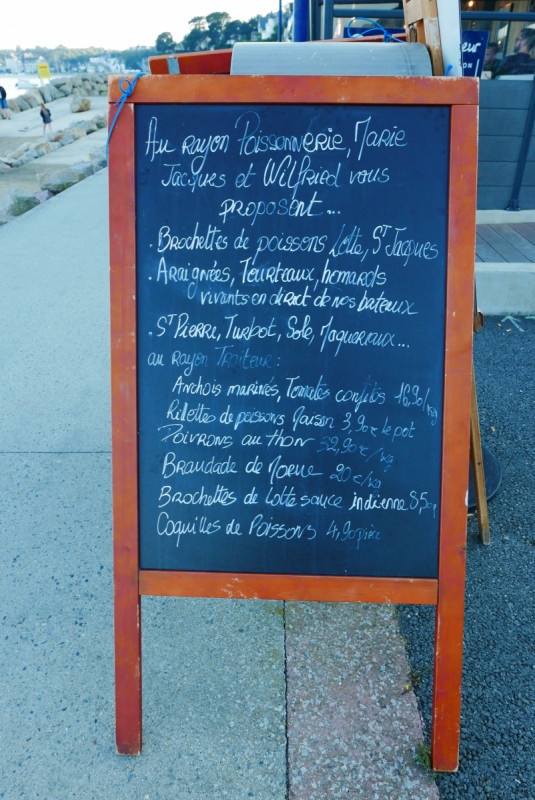 Au rayon Poissonnerie, Marie
Jacques et Wilfried vous
proposent...
. Brochettes de poissons Lotte, St Jacques
. Araignées, Tourteaux, homards
vivants en direct de nos bateaux
. St Pierre, Turbot, Sole, Maquereaux...
au rayon Traiteur :
Anchois marinés, Tomates confites 16,90/kg
Rillettes de poissons Maison 3,90€ le pot
Poivrons au thon 32,90€/kg
Brandade de Morue 20€/kg
Brochettes de Lotte sauce indienne
Coquilles de Poissons 4,90 pièce